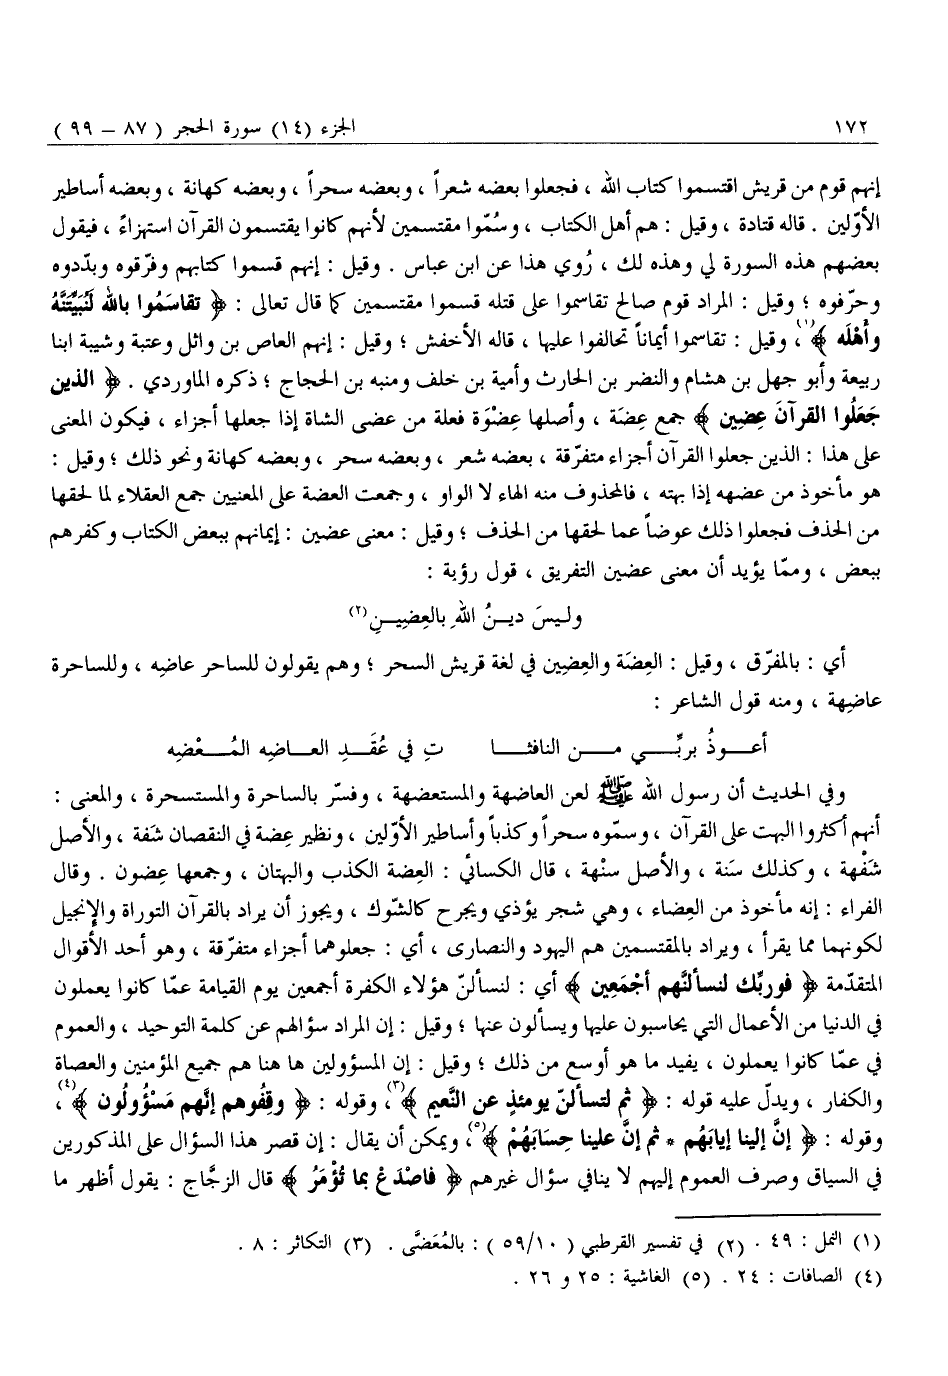 ١٧٢ الجزء (١٤) سورة الحجر ( ٨٧ – ٩٩ )
إنهم قوم من قريش اقتسموا كتاب الله ، فجعلوا بعضه شعراً ، وبعضه سحراً ، وبعضه كهانة ، وبعضه أساطير
الأوّلين . قاله قتادة ، وقيل : هم أهل الكتاب ، وسُمّوا مقتسمين لأنهم كانوا يقتسمون القرآن استهزاءً ، فيقول
بعضهم هذه السورة لي وهذه لك ، رُوي هذا عن ابن عباس . وقيل : إنهم قسموا كتابهم وفرّقوه وبدّدوه
وحرّفوه ؛ وقيل : المراد قوم صالح تقاسموا على قتله قسموا مقتسمين كما قال تعالى : ﴿ تقاسَمُوا بالله لَنُبَيِّتَنَّهُ
وأهْلَه ﴾(١)، وقيل : تقاسموا أيماناً تحالفوا عليها ، قاله الأخفش ؛ وقيل : إنهم العاص بن وائل وعتبة وشيبة ابنا
ربيعة وأبو جهل بن هشام والنضر بن الحارث وأمية بن خلف ومنبه بن الحجاج ؛ ذكره الماوردي . ﴿ الذين
جَعَلُوا القرآنَ عِضِين ﴾ جمع عِضَة ، وأصلها عِضْوَة فعلة من عضى الشاة إذا جعلها أجزاء ، فيكون المعنى
على هذا : الذين جعلوا القرآن أجزاء متفرّقة ، بعضه شعر ، وبعضه سحر ، وبعضه كهانة ونحو ذلك ؛ وقيل :
هو مأخوذ من عضهه إذا بهته ، فالمحذوف منه الهاء لا الواو ، وجمعت العضة على المعنيين جمع العقلاء لما لحقها
من الحذف فجعلوا ذلك عوضاً عما لحقها من الحذف ؛ وقيل : معنى عضين : إيمانهم ببعض الكتاب وكفرهم
ببعض ، وممّا يؤيد أن معنى عضين التفريق ، قول رؤبة :
وليسَ دينُ اللهِ بالعِضِينِ(٢)
أي : بالمفرّق ، وقيل : العِضَة والعِضِين في لغة قريش السحر ؛ وهم يقولون للساحر عاضِه ، وللساحرة
عاضِهة ، ومنه قول الشاعر :
أعوذُ بربِّي من النافثا تِ في عُقَدِ العاضِه المُعْضِه
وفي الحديث أن رسول الله ﷺ لعن العاضهة والمستعضهة ، وفسّر بالساحرة والمستسحرة ، والمعنى :
أنهم أكثروا البهت على القرآن ، وسمّوه سحراً وكذباً وأساطير الأوّلين ، ونظير عِضة في النقصان شَفة ، والأصل
شَفْهة ، وكذلك سَنة ، والأصل سنْهة ، قال الكسائي : العِضة الكذب والبهتان ، وجمعها عِضون . وقال
الفراء : إنه مأخوذ من العِضاه ، وهي شجر يؤذي ويجرح كالشّوك ، ويجوز أن يراد بالقرآن التوراة والإنجيل
لكونهما مما يقرأ ، ويراد بالمقتسمين هم اليهود والنصارى ، أي : جعلوهما أجزاء متفرّقة ، وهو أحد الأقوال
المتقدّمة ﴿ فوربِّك لنسألنَّهم أجْمَعِين ﴾ أي : لنسألنّ هؤلاء الكفرة أجمعين يوم القيامة عمّا كانوا يعملون
في الدنيا من الأعمال التي يحاسبون عليها ويسألون عنها ؛ وقيل : إن المراد سؤالهم عن كلمة التوحيد ، والعموم
في عمّا كانوا يعملون ، يفيد ما هو أوسع من ذلك ؛ وقيل : إن المسؤولين ها هنا هم جميع المؤمنين والعصاة
والكفار ، ويدلّ عليه قوله : ﴿ ثم لتسألنّ يومئذٍ عن النَّعيم ﴾(٣)، وقوله : ﴿ وقِفُوهم إنَّهم مَسْؤُولُون ﴾(٤)،
وقوله : ﴿ إنَّ إلينا إيابَهُم * ثم إنَّ علينا حِسَابَهُمْ ﴾(٥)، ويمكن أن يقال : إن قصر هذا السؤال على المذكورين
في السياق وصرف العموم إليهم لا ينافي سؤال غيرهم ﴿ فاصْدَعْ بما تُؤْمَرُ ﴾ قال الزجَّاج : يقول أظهر ما
(١) النمل : ٤٩ . (٢) في تفسير القرطبي ( ١٠/٥٩ ) : بالمُعَضَّى . (٣) التكاثر : ٨ .
(٤) الصافات : ٢٤ . (٥) الغاشية : ٢٥ و ٢٦ .